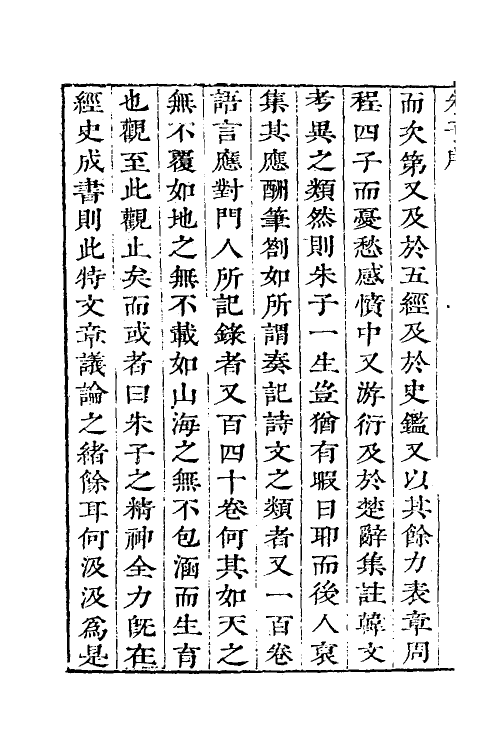 而次第又及於五經及於史鑑又以其餘力表章周
程四子而憂愁感憤中又游衍及於楚辭集註韓文
考異之類然則朱子一生豈猶有暇日耶而後人裒
集其應酬筆劄如所謂奏記詩文之類者又一百卷
語言應對門人所記錄者又百四十卷何其如天之
無不覆如地之無不載如山海之無不包涵而生育
也觀至此觀止矣而或者曰朱子之精神全力旣在
經史成書則此特文章議論之緒餘耳何汲汲爲是